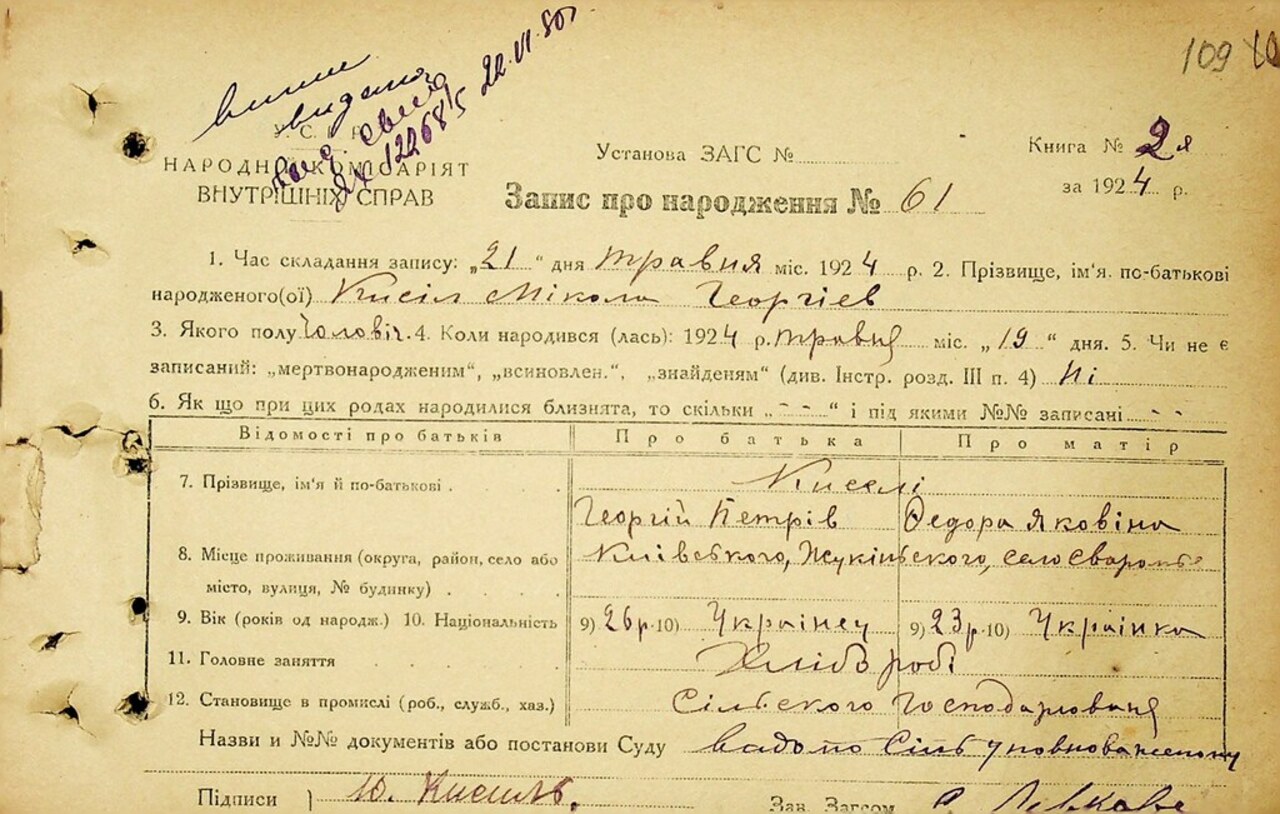 109
виписка
видана
22.VI.50
У. С. Р. Р.
НАРОДНІЙ КОМІСАРІЯТ
ВНУТРІШНІХ СПРАВ
Установа ЗАГС №
Книга № 2я
за 1924 р.
Запис про народження № 61
1. Час складання запису: „21“ дня травня міс. 1924 р. 2. Прізвище, ім'я. по-батькові
народженого(ої) Кисіл Мікола Георгіев
3. Якого полу Чоловіч. 4. Коли народився (лась): 1924 р. травня міс. „19“ дня. 5. Чи не є
записаний: „мертвонародженим“, „всиновлен.“, „знайденям“ (див. Інстр. розд. III п. 4) Ні
6. Як що при цих родах народилися близнята, то скільки „- -“ і під якими №№ записані - -
Відомості про батьків Про батька Про матір
7. Прізвище, ім'я й по-батькові Киселі
Георгій Петрів Федора Яковіна
8. Місце проживання (округа, район, село або Київського, Жукінського, село
місто, вулиця, № будинку)
9. Вік (років од народж.) 10. Національність 9) 26 р. 10) Українец 9) 23 р. 10) Українка
11. Головне заняття Хлібробі
12. Становище в промислі (роб., служб., хаз.) Сільського Господарювання
Назви и №№ документів або постанови Суду
Підписи Ю. Кисиль. Зав. Загсом